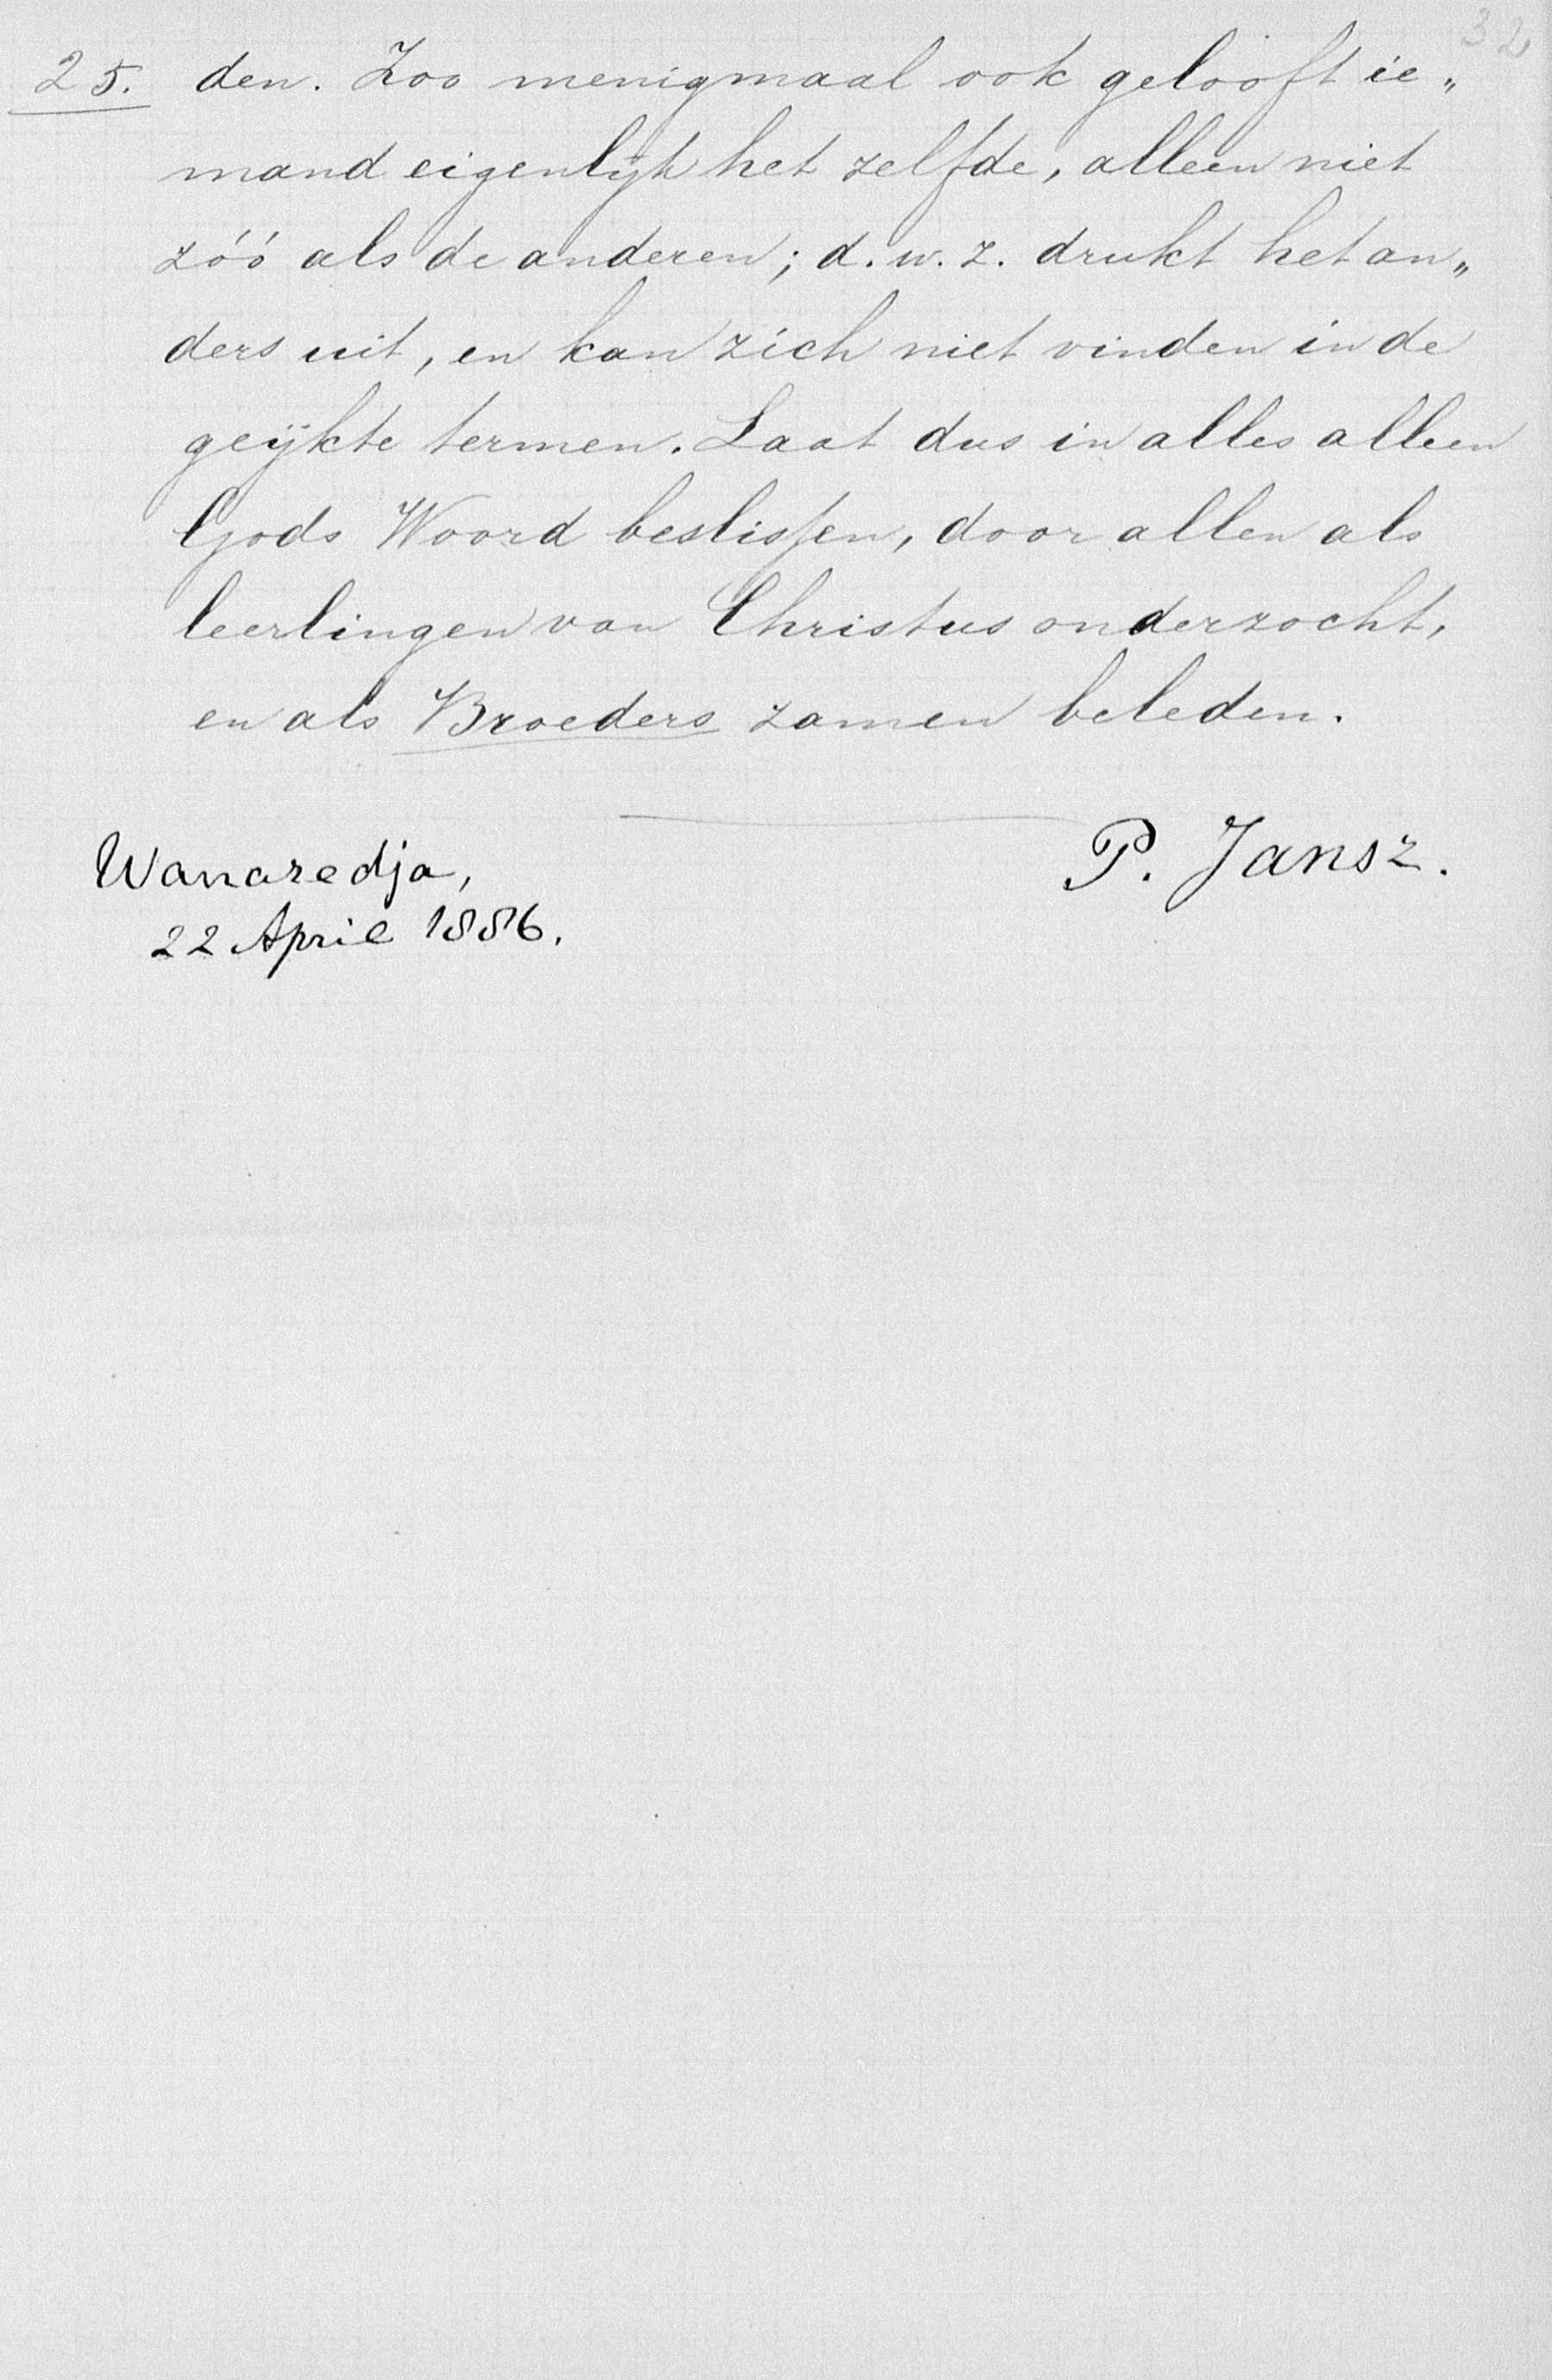 32
25. den. Zoo menigmaal ook gelooft ie„
mand eigenlijk het zelfde, alleen niet
zóó als de anderen; d.w.z. drukt het an„
ders uit, en kan zich niet vinden in de
geijkte termen. Laat dus in alles alleen
Gods Woord beslissen, door allen als
leerlingen van Christus onderzocht,
en als Broeders zamen beleden.
P. Jansz.
Wanaredja,
22 April 1886.